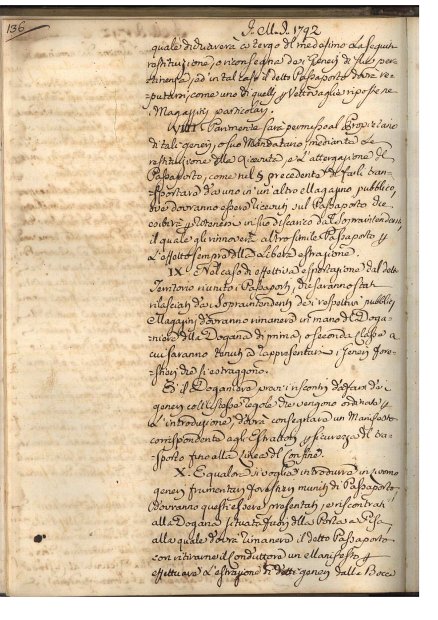 136
J. M. J. 1792
quale si troverà a tergo del medesimo la seguita
restituzione, o riconsegna dei Generi di sua per-
tinenza, ed in tal caso il detto Passaporto dovrà re-
putarsi, come uno di quelli, p Vettovaglie riposte ne
i Magazzini particolari.
VIII. Parimente sarà permesso al Proprietario
di tali generi, o suo Mandatario, mediante la
restituzione della Ricevuta, e l'attergazione del
Passaporto, come nel § precedente di farli tran-
sportare da uno in un altro Magazzino pubblico,
ove dovranno essere ricevuti sul Passaporto che
esibirà, e riterrà in suo discarico dal Sopraintendente,
il quale gli rinnoverà altro simile Passaporto p
l'effetto sempre della libera estrazione.
IX. Nel caso di effettiva esportazione dal detto
Territorio riuniti i Passaporti, che saranno stati
rilasciati dai Sopraintendenti dei respettivi pubblici
Magazzini dovranno rimanere in mano del Doga-
niere della Dogana di prima, o seconda Classe a
cui saranno tenuti a rappresentare i Generi fore-
stieri che si estraggono.
E il Doganiere previ i riscontri da farsi dei
generi coll'istesse regole che vengono ordinate p
l'introduzione, dovrà consegnare un Manifesto
corrispondente agli Estrattori p sicurezza del tra-
sporto fino alla linea del Confine.
X. Equalora si voglia introdurre in
generi frumentari forestieri muniti di Passaporto,
dovranno questi essere presentati, e riscontrati
alla Dogana situata fuori della Porta a
alla quale dovrà rimanere il detto Passaporto
con ritirarne il Conduttore un Manifesto p
effettuare l'estrazione di detti generi dalle Bocce